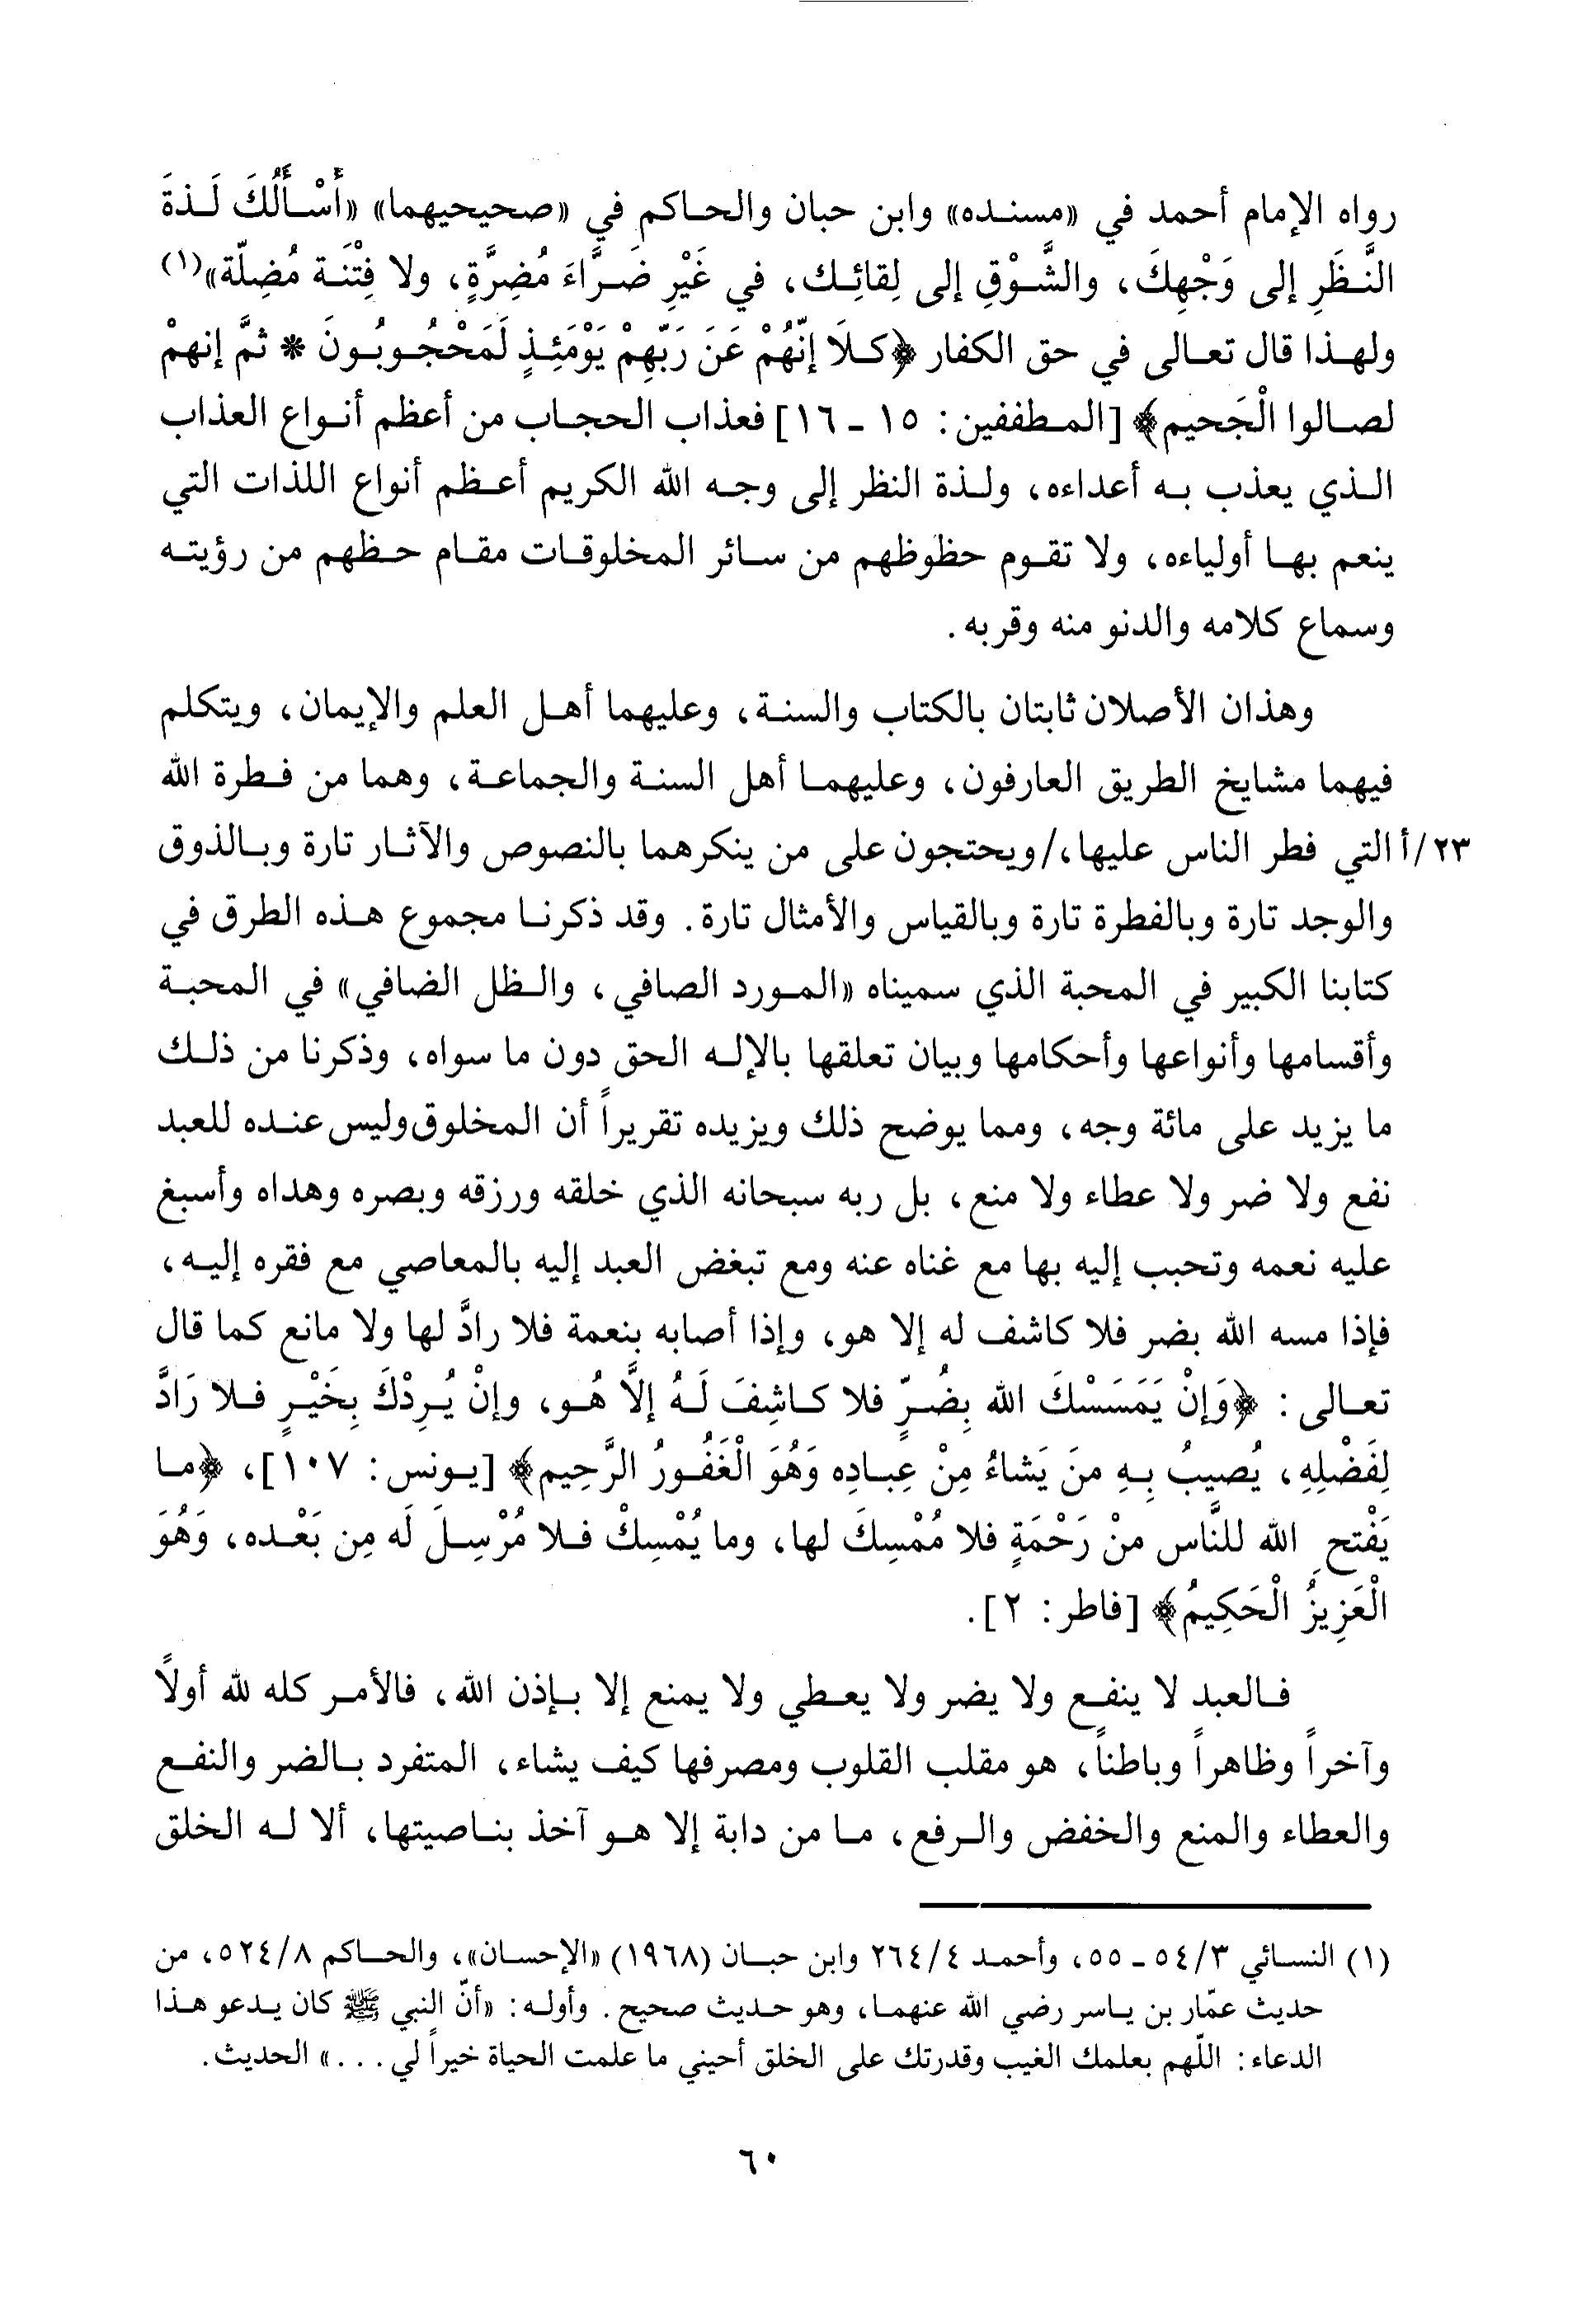 رواه الإمام أحمد في «مسنده» وابن حبان والحاكم في «صحيحيهما» «أَسْأَلُكَ لَذةَ
النَّظَرِ إلى وَجْهِكَ، والشَّوْقِ إلى لِقائِك، في غَيْرِ ضَرَّاءَ مُضِرَّةٍ، ولا فِتْنَة مُضِلّة»(١)
ولهذا قال تعالى في حق الكفار ﴿كلَا إنّهُمْ عَنَ رَبّهِمْ يَوْمَئِذٍ لَمَحْجُوبُونَ * ثمَّ إنهمْ
لصالوا الْجَحيم﴾ [المطففين: ١٥ - ١٦] فعذاب الحجاب من أعظم أنواع العذاب
الذي يعذب به أعداءه، ولذة النظر إلى وجه الله الكريم أعظم أنواع اللذات التي
ينعم بها أولياءه، ولا تقوم حظوظهم من سائر المخلوقات مقام حظهم من رؤيته
وسماع كلامه والدنو منه وقربه.
وهذان الأصلان ثابتان بالكتاب والسنة، وعليهما أهل العلم والإيمان، ويتكلم
فيهما مشايخ الطريق العارفون، وعليهما أهل السنة والجماعة، وهما من فطرة الله
٢٣/أ التي فطر الناس عليها،/ ويحتجون على من ينكرهما بالنصوص والآثار تارة وبالذوق
والوجد تارة وبالفطرة تارة وبالقياس والأمثال تارة. وقد ذكرنا مجموع هذه الطرق في
كتابنا الكبير في المحبة الذي سميناه «المورد الصافي، والظل الضافي» في المحبة
وأقسامها وأنواعها وأحكامها وبيان تعلقها بالإله الحق دون ما سواه، وذكرنا من ذلك
ما يزيد على مائة وجه، ومما يوضح ذلك ويزيده تقريراً أن المخلوق وليس عنده للعبد
نفع ولا ضر ولا عطاء ولا منع، بل ربه سبحانه الذي خلقه ورزقه وبصره وهداه وأسبغ
عليه نعمه وتحبب إليه بها مع غناه عنه ومع تبغض العبد إليه بالمعاصي مع فقره إليه،
فإذا مسه الله بضر فلا كاشف له إلا هو، وإذا أصابه بنعمة فلا رادَّ لها ولا مانع كما قال
تعالى: ﴿وَإنْ يَمَسَسْكَ الله بِضُرّ فلا كاشِفَ لَهُ إلاَّ هُو، وإنْ يُرِدْكَ بِخَيْرٍ فلا رَادَّ
لِفَضْلِهِ، يُصيبُ بِهِ منَ يَشاءُ مِنْ عِباده وَهُوَ الْغَفُورُ الرَّحِيم﴾ [يونس: ١٠٧]، ﴿ما
يَفْتح ِ الله للنَّاس منْ رَحْمَةٍ فلا مُمْسِكَ لها، وما يُمْسِكْ فلا مُرْسِلَ لَه مِن بَعْده، وَهُوَ
الْعَزِيزُ الْحَكِيمُ﴾ [فاطر: ٢].
فالعبد لا ينفع ولا يضر ولا يعطي ولا يمنع إلا بإذن الله، فالأمر كله لله أولاً
وآخراً وظاهراً وباطناً، هو مقلب القلوب ومصرفها كيف يشاء، المتفرد بالضر والنفع
والعطاء والمنع والخفض والرفع، ما من دابة إلا هو آخذ بناصيتها، ألا له الخلق
(١) النسائي ٥٤/٣ - ٥٥، وأحمد ٢٦٤/٤ وابن حبان (١٩٦٨) «الإحسان»، والحاكم ٥٢٤/٨، من
حديث عمّار بن ياسر رضي الله عنهما، وهو حديث صحيح. وأوله: «أنّ النبي ﷺ كان يدعو هذا
الدعاء: اللّهم بعلمك الغيب وقدرتك على الخلق أحيني ما علمت الحياة خيراً لي...» الحديث.
٦٠